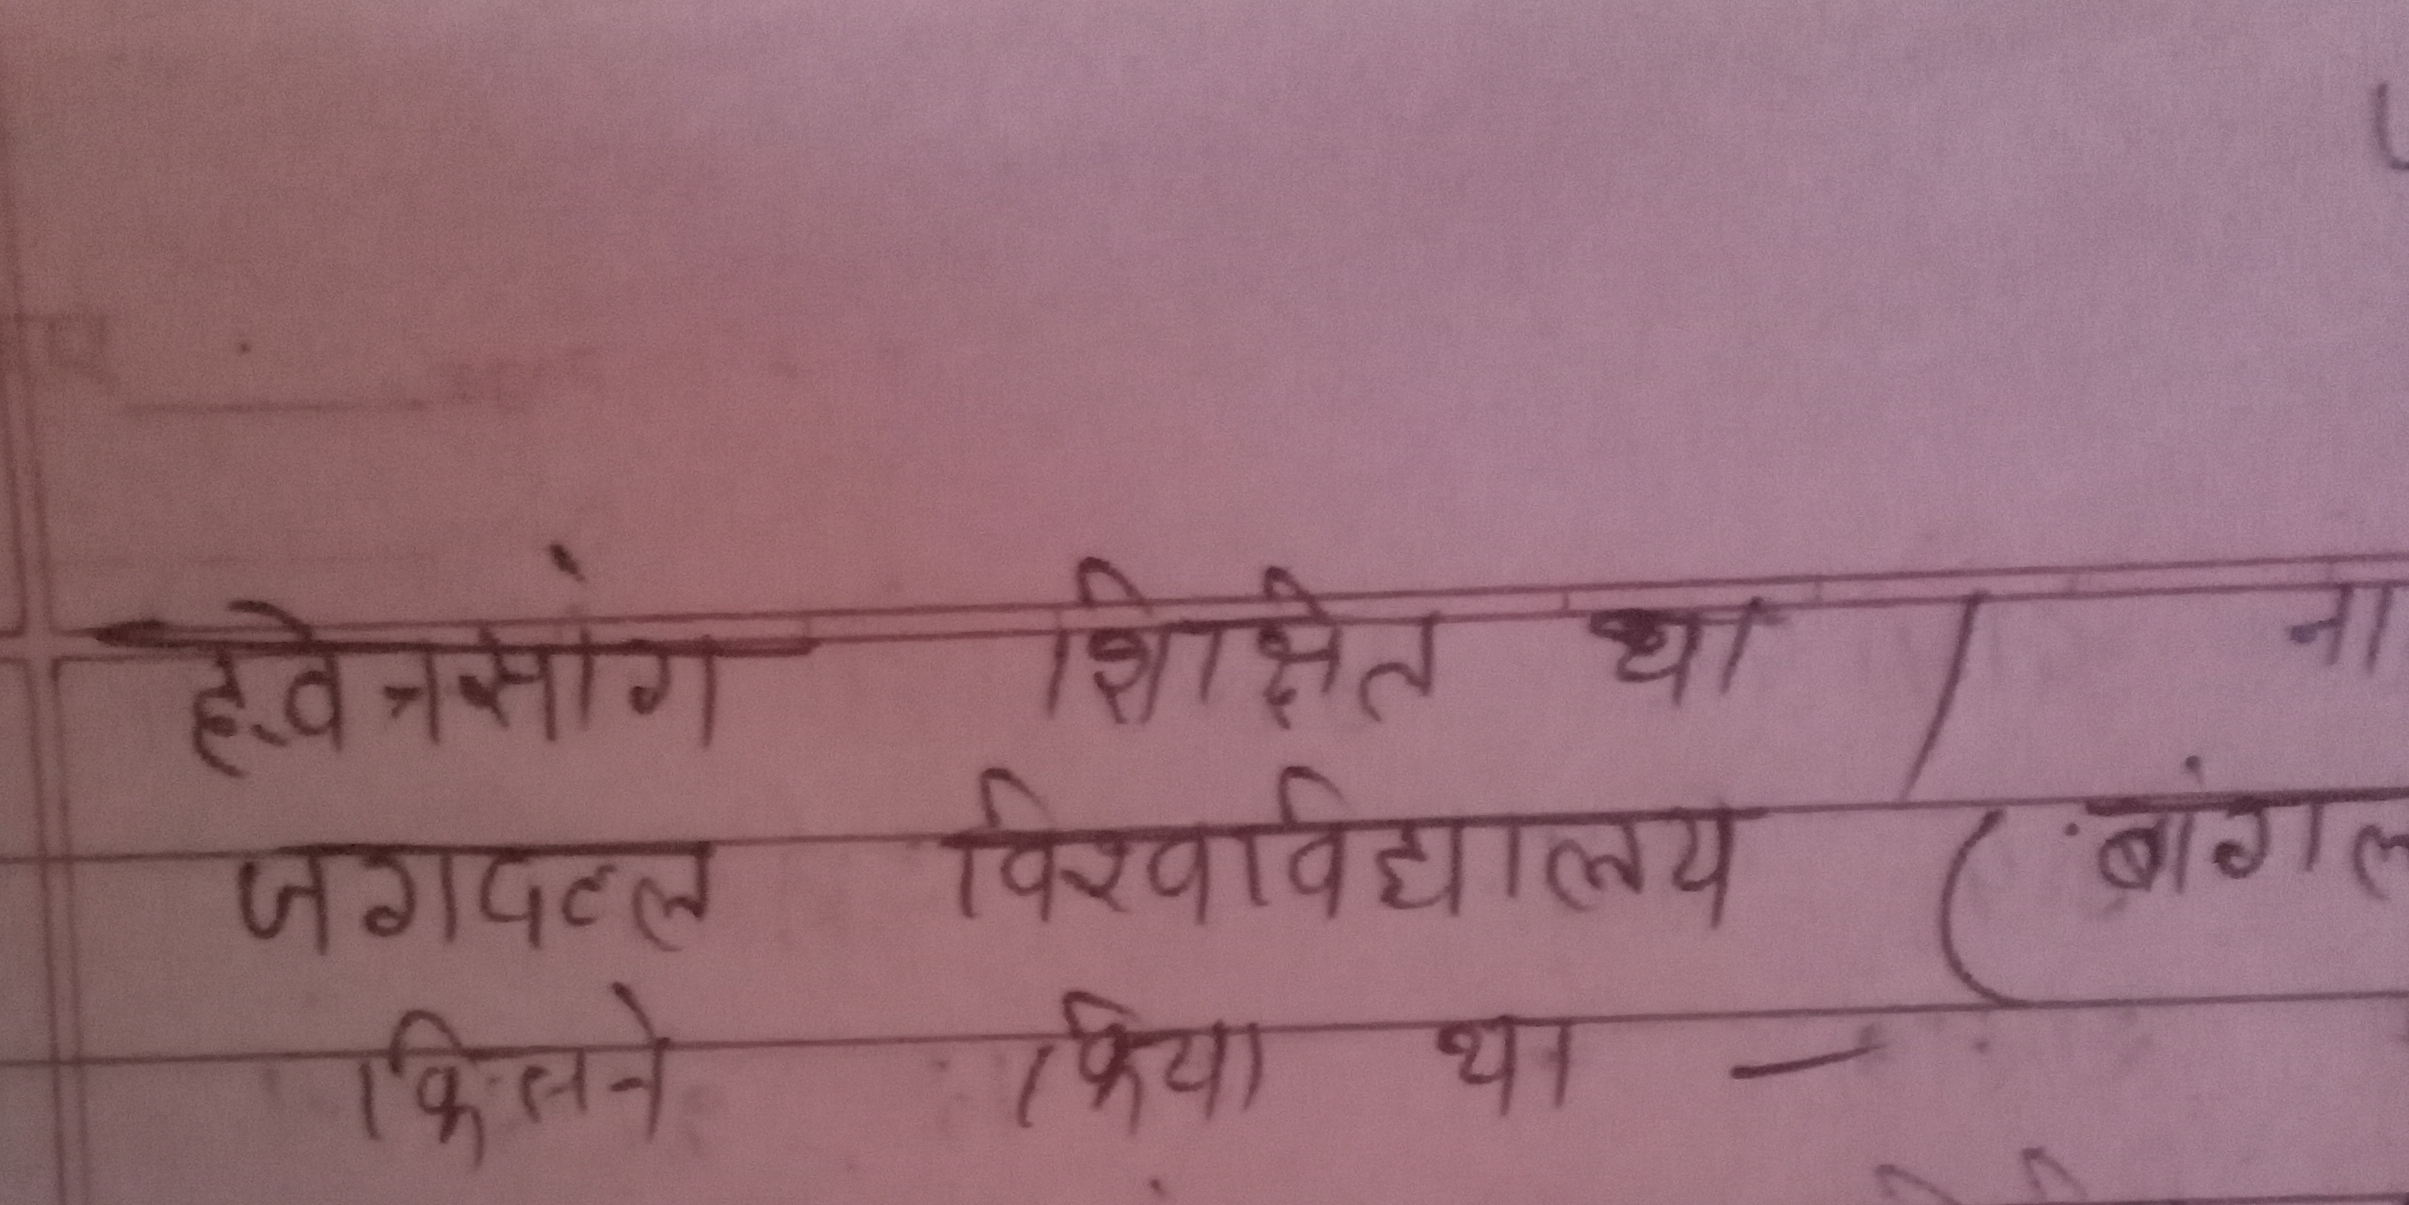 ह्वेनसांग शिक्षित था । ना
जगदल्ल विश्वविद्यालय ( बांगल
किसने किया था —